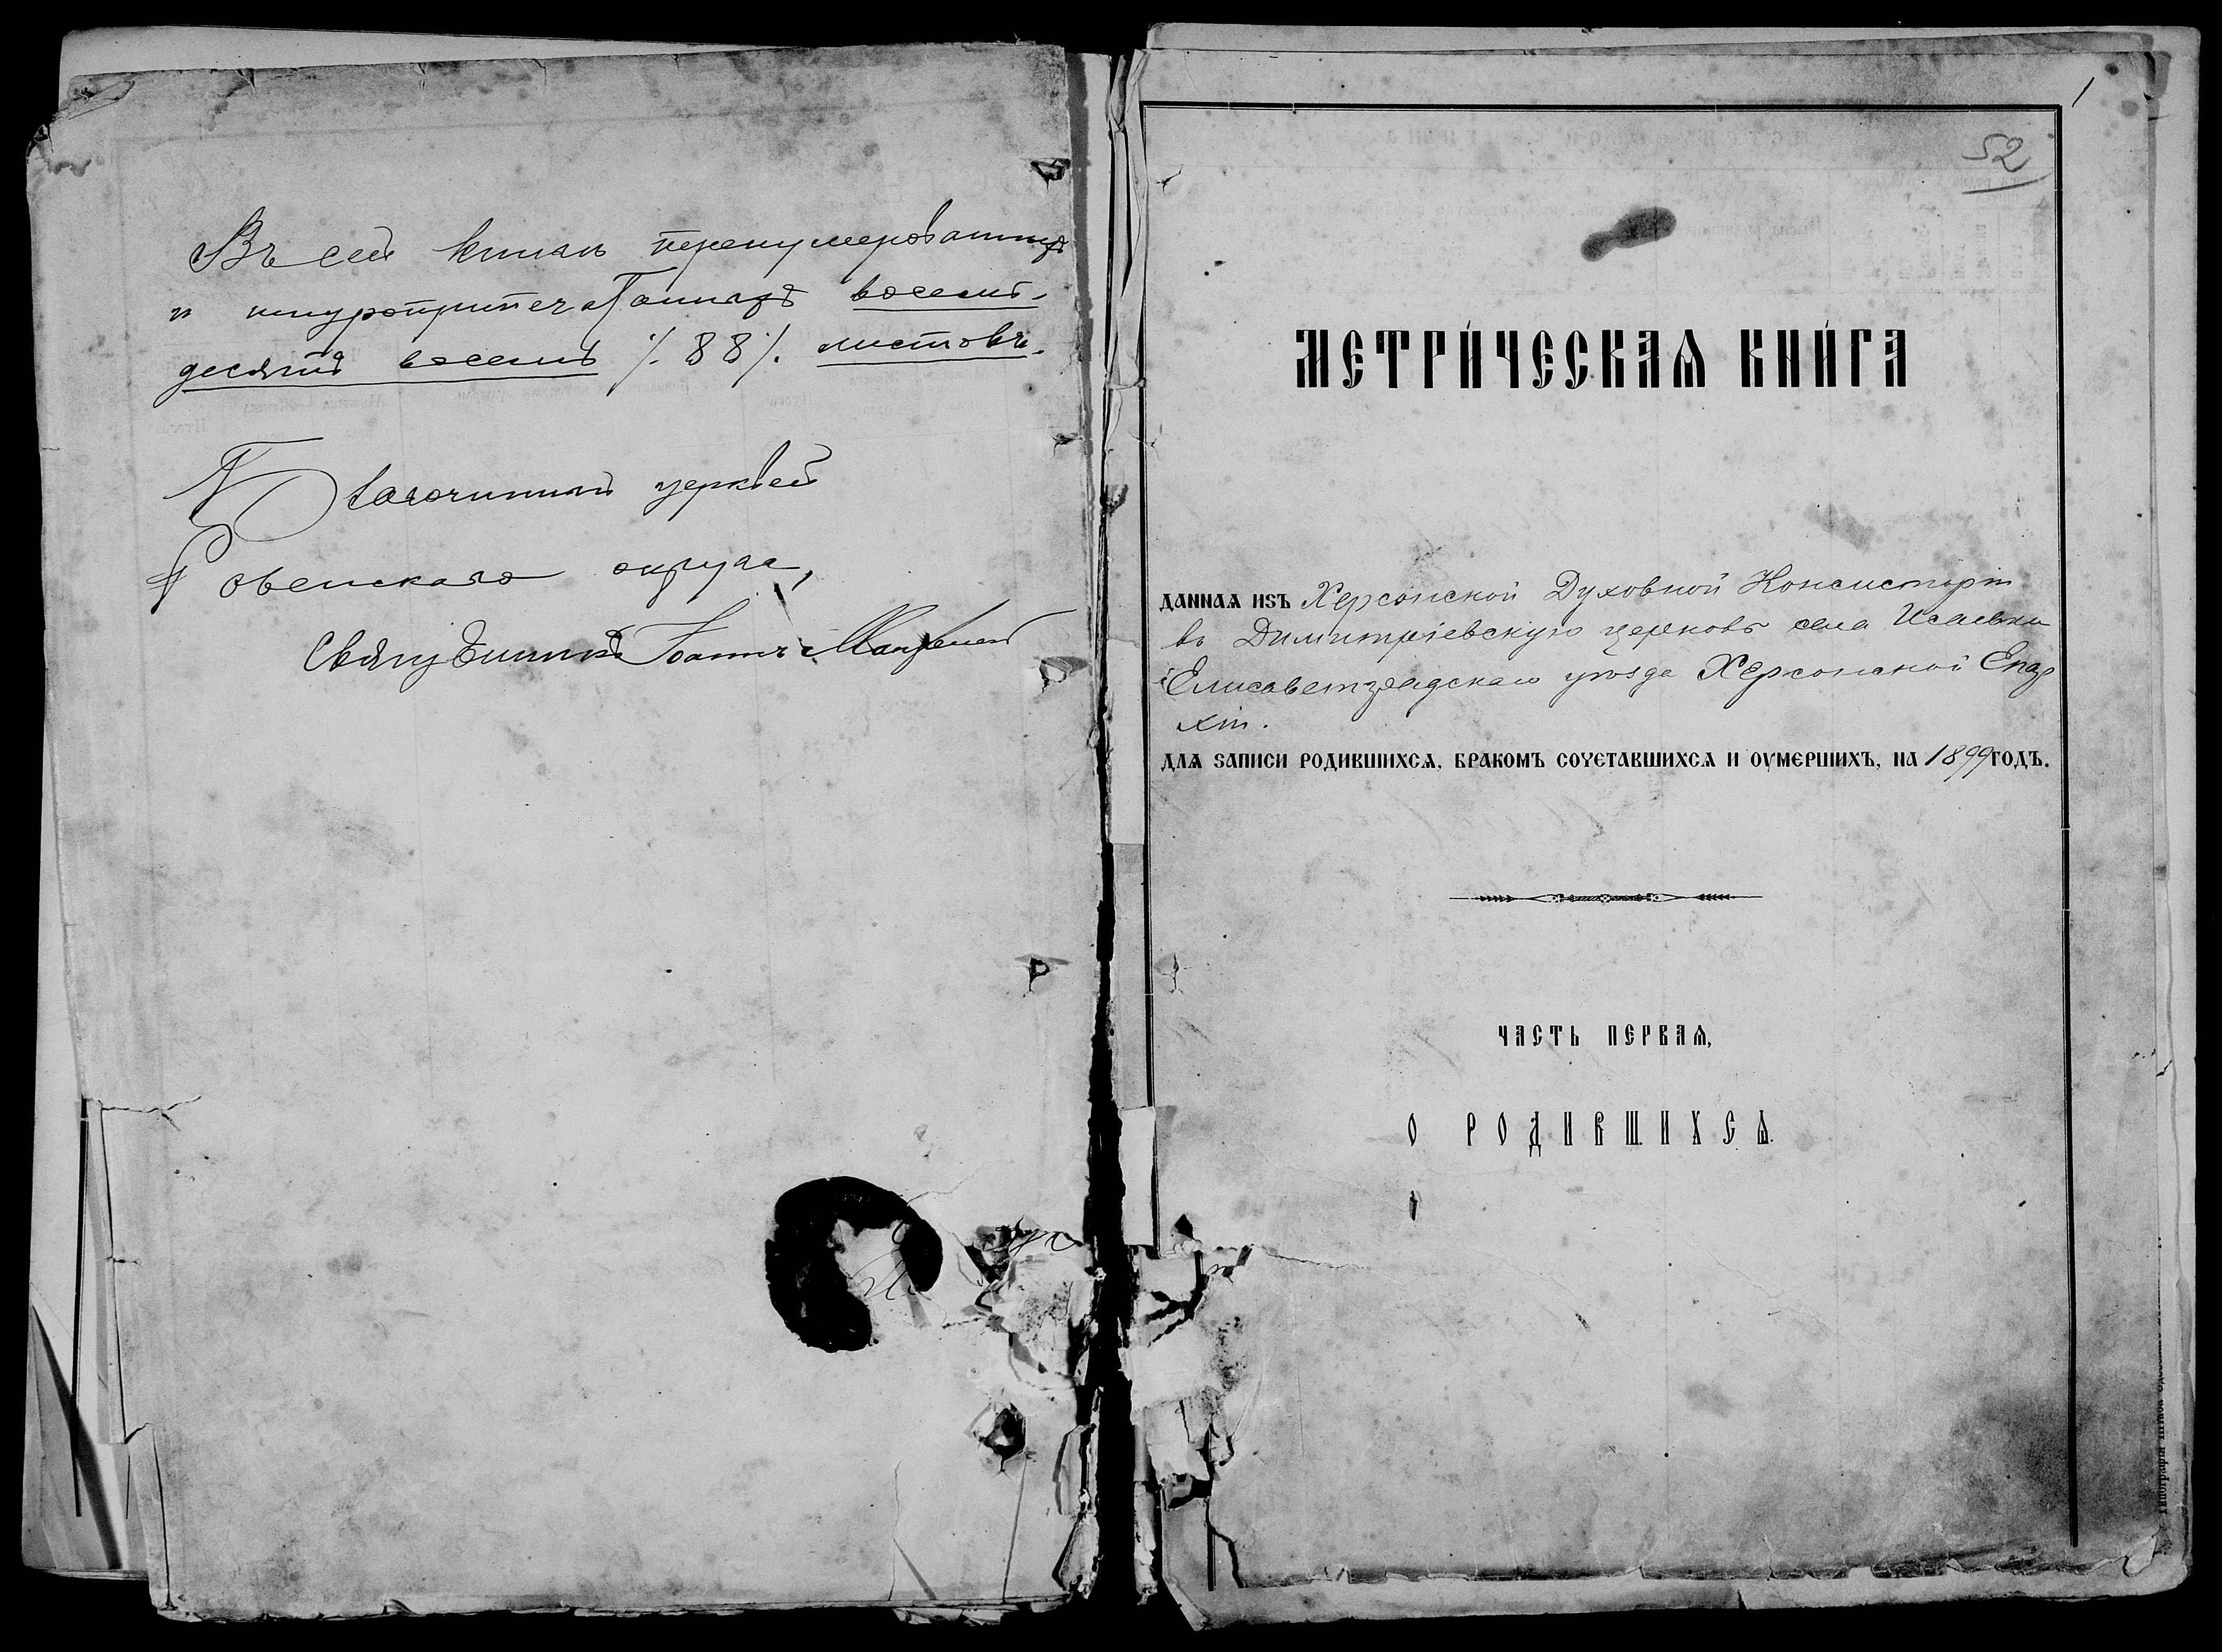 Въ сей книгѣ перенумерованныхъ
и шнуроприпечатанныхъ восемь-
десятъ восемь /. 88 /. листовъ.
Благочинный церквей
Ровенскаго округа,
Священникъ Іоаннъ
1
52
МЕТРИ́ЧЕСКАѦ КНИ́ГА
ДАННАѦ ИЗЪ Херсонской Духовной Консисторіи
въ Димитріевскую церковь села Исаевки
Елисаветградскаго уѣзда Херсонской Епар
хіи.
ДЛѦ ЗАПИСИ РОДИВШИХСѦ, БРАКОМЪ СОЧЕТАВШИХСѦ И ОУМЕРШИХЪ, НА 1899 ГОДЪ.
ЧАСТЬ ПЕРВАѦ,
О РОДИВШИХСѦ.